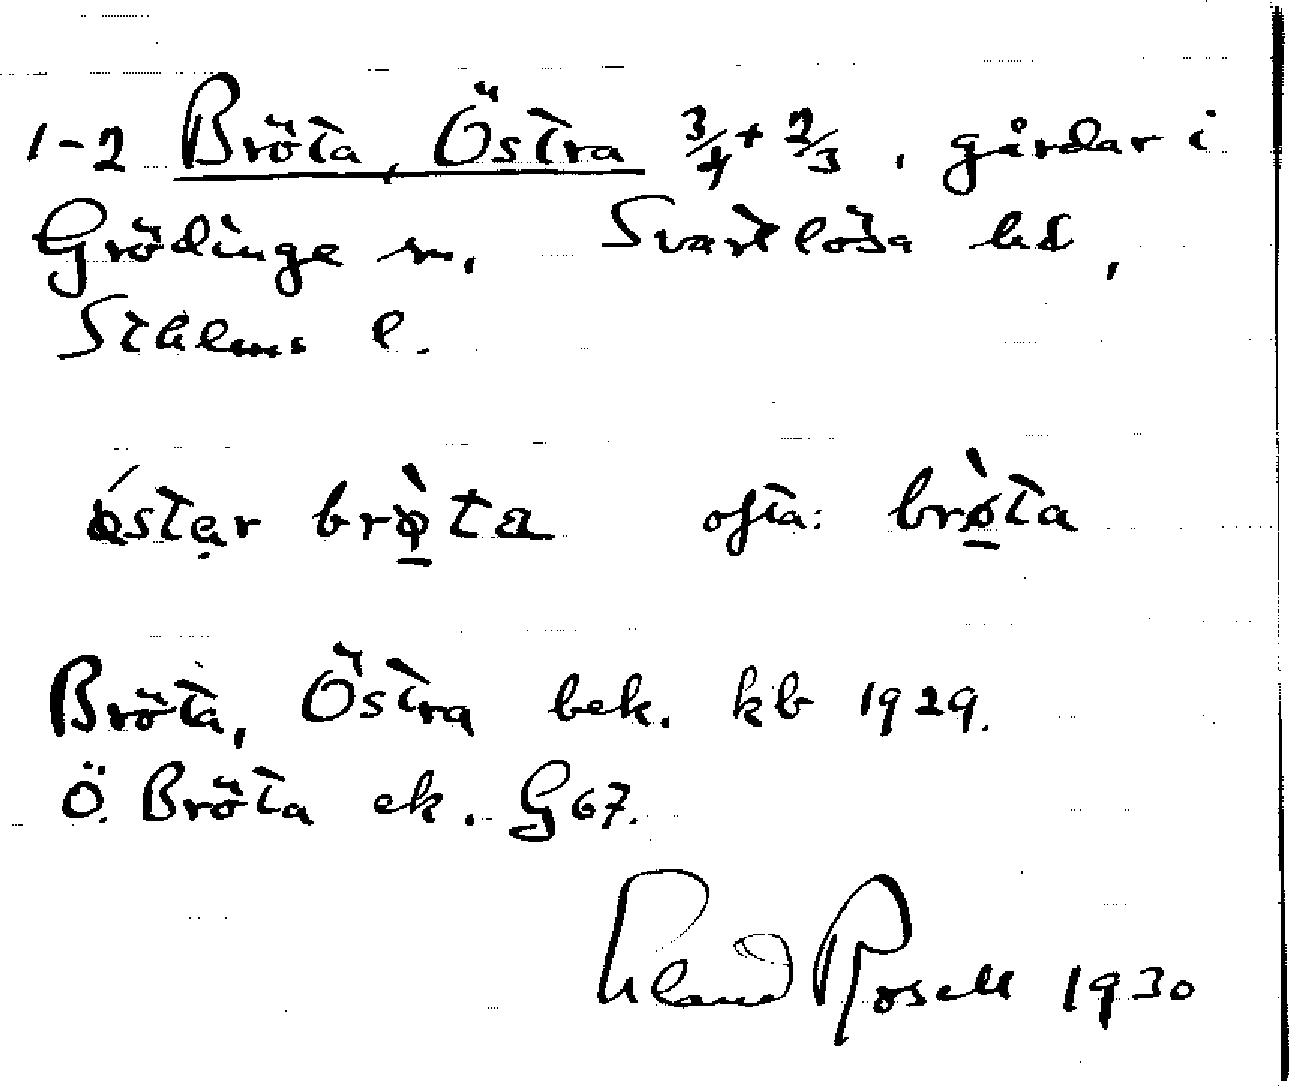 1-2 Bröta, Östra 3/4 + 2/3, gårdar i
Grödinge sn, Svartlösa hd,
Sthlms l.
ǿstạr brø̱̀ta ofta: brø̱̀ta
Bröta, Östra bek. kb 1929.
Ö. Bröta ek. G67.
Rosell 1930